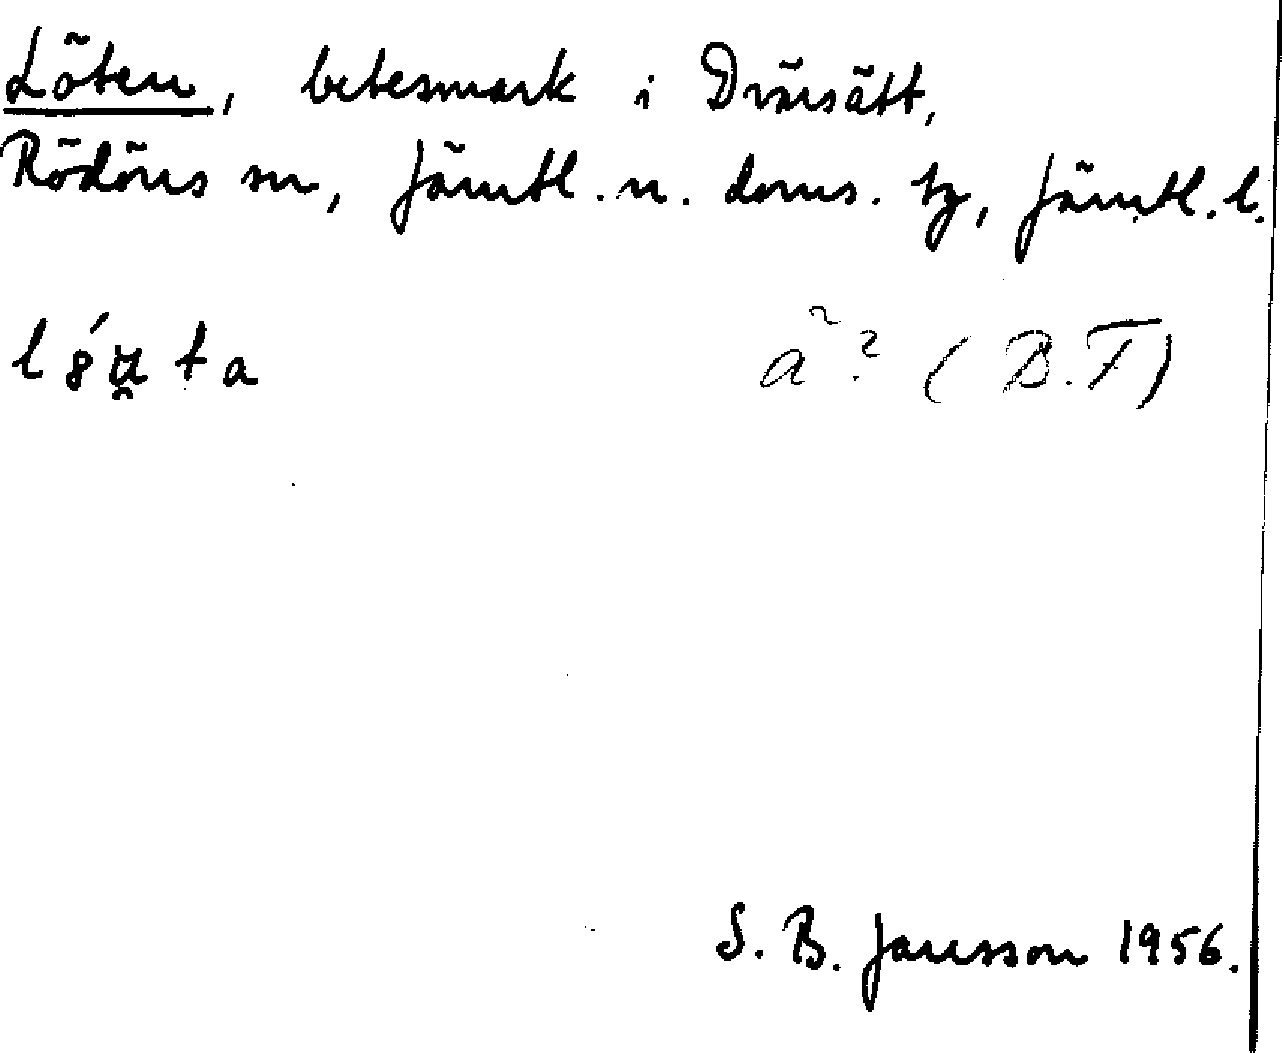 Löten, betesmark i Dvärsätt,
Rödöns sn, Jämtl. n. doms. tg, Jämtl. l.
ã? (B.T)
S. B. Jansson 1956.